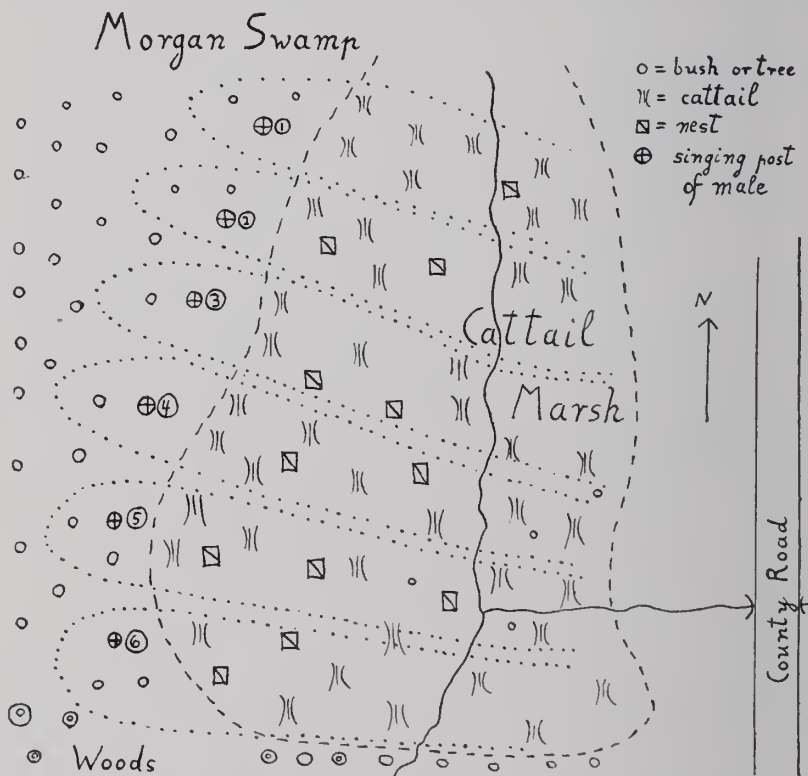 Morgan Swamp
o = bush or tree
= cattail
= nest
singing post
of male
①
②
③
N
Cattail
④
Marsh
⑤
⑥
County Road
Woods